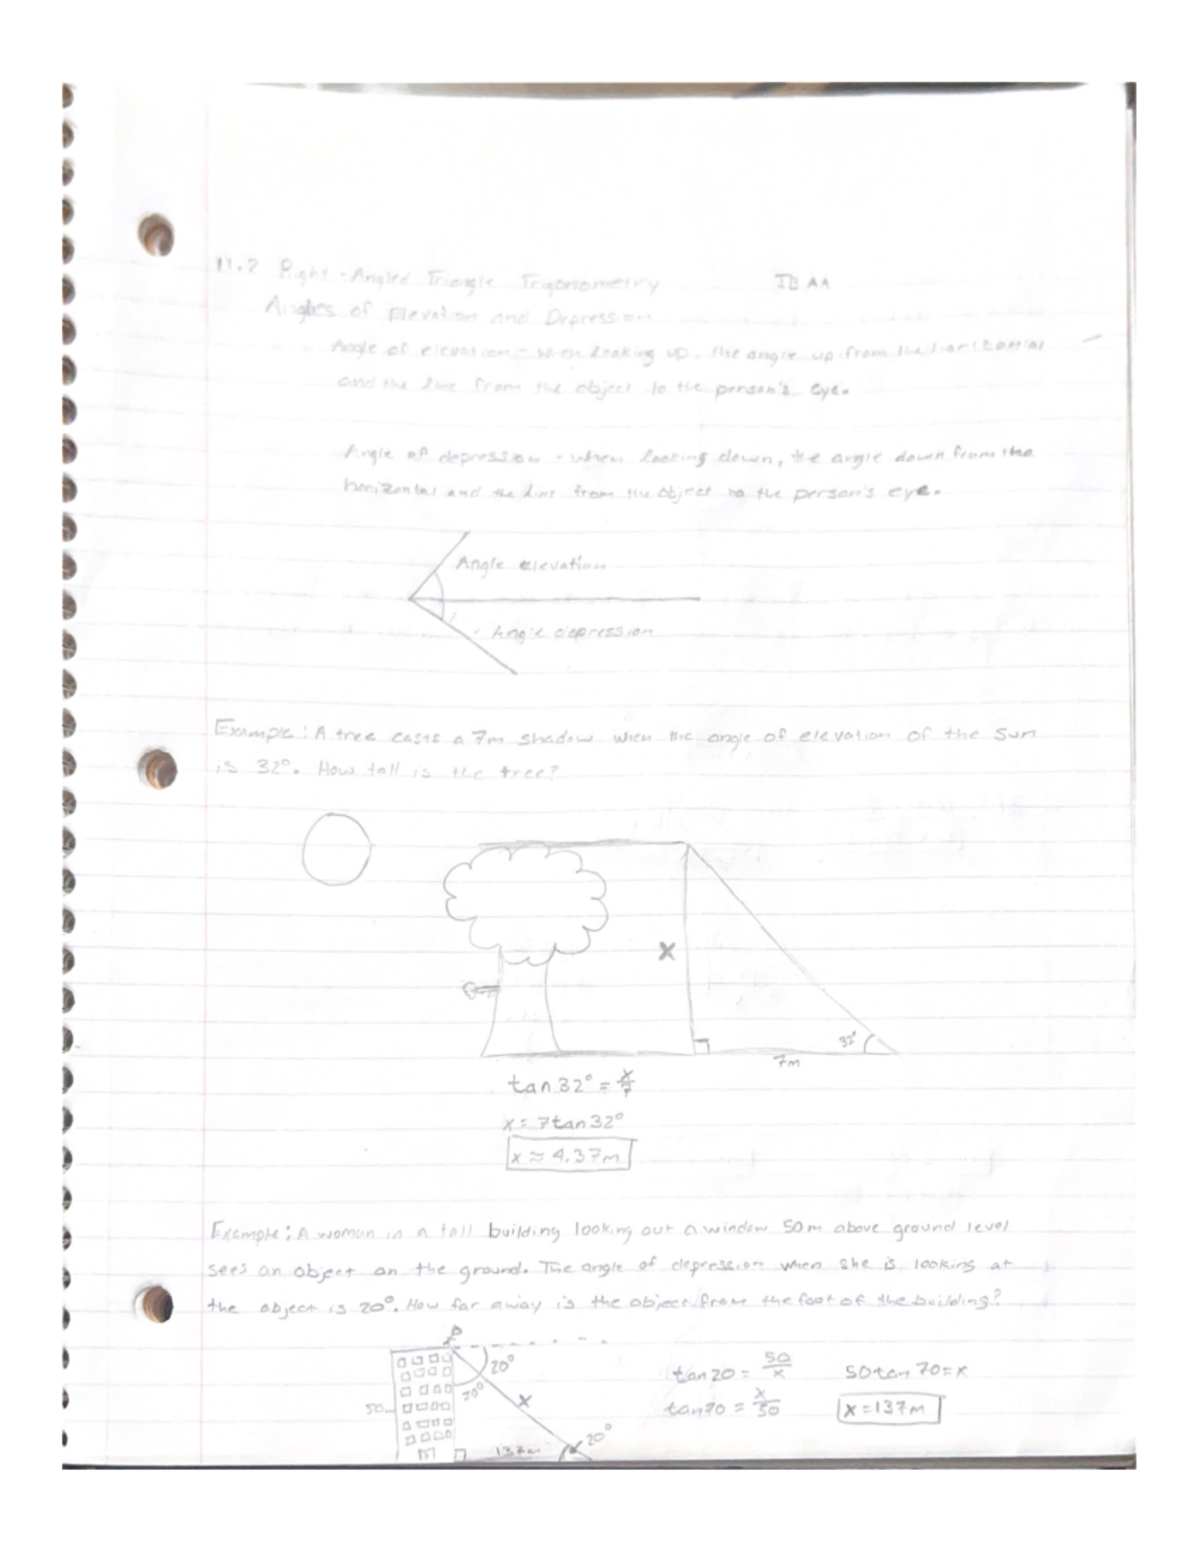 11.2 Right-Angled Triangle Trigonometry IB AA
Angles of Elevation and Depression
Angle of elevation - when looking up, the angle up from the horizontal
and the line from the object to the person's eye.
Angle of depression - when looking down, the angle down from the
horizontal and the line from the object to the person's eye.
Angle elevation
Angle depression
Example: A tree casts a 7m shadow when the angle of elevation of the sun
is 32°. How tall is the tree?
x
32°
7m
tan 32° = x/7
x = 7tan 32°
x ≈ 4.37m
Example: A woman in a tall building looking out a window 50m above ground level
sees an object on the ground. The angle of depression when she is looking at
the object is 20°. How far away is the object from the foot of the building?
20°
70°
x
50
137m
20°
tan 20 = 50/x 50 tan 70 = x
tan 70 = x/50 x = 137m